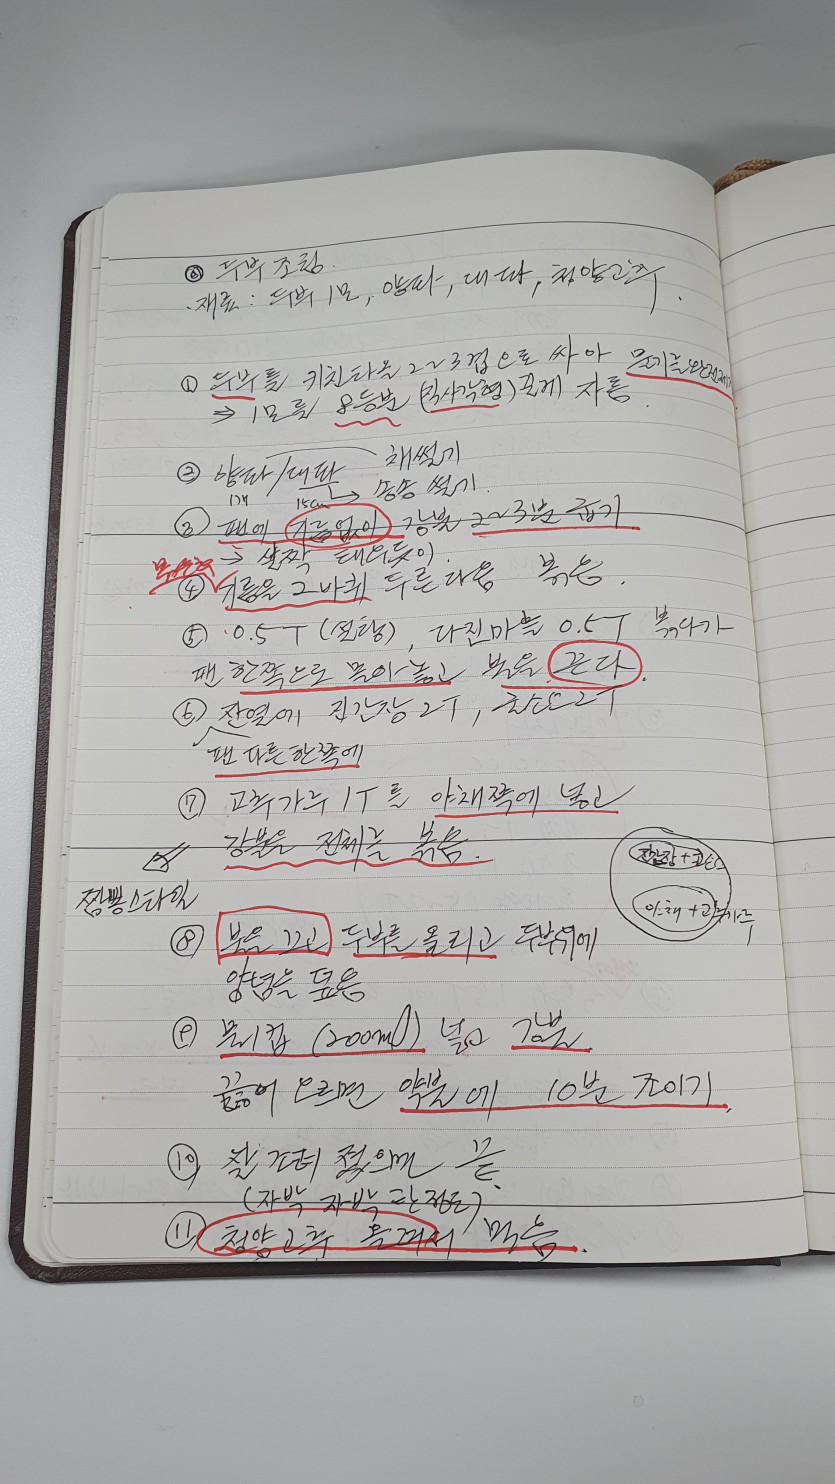 ◎ 두부 조림.
· 재료 : 두부 1모, 양파, 대파, 청양고추.
① 두부를 키친타올 2~3겹으로 싸아 물기를 완전제거
⇒ 1모를 8등분 (직사각형)모게 자름.
② 양파/대파 채썰기
1개 15cm → 송송 썰기.
③ 팬에 기름없이 강불 2~3분 굽기
→ 살짝 태우듯이.
④ 기름을 2바퀴 두른다음 볶음.
⑤ 0.5T (설탕), 다진마늘 0.5T 볶다가
팬 한쪽으로 몰아놓고 불을 끈다.
⑥ 잔열에 진간장 2T, 굴소스 2T
팬 다른한쪽에
⑦ 고추가루 1T를 야채쪽에 넣고
강불을 전체를 볶음.
짬뽕스타일
진간장+굴소스
야채+고추가루
⑧ 불을 끄고 두부를 올리고 두부위에
양념을 덮음
⑨ 물1컵 (200ml) 넣고 강불.
끓어 오르면 약불에 10분 조이기.
⑩ 잘 조려 졌으면 끝.
(자박 자박 한정도)
⑪ 청양고추 올려서 먹음.